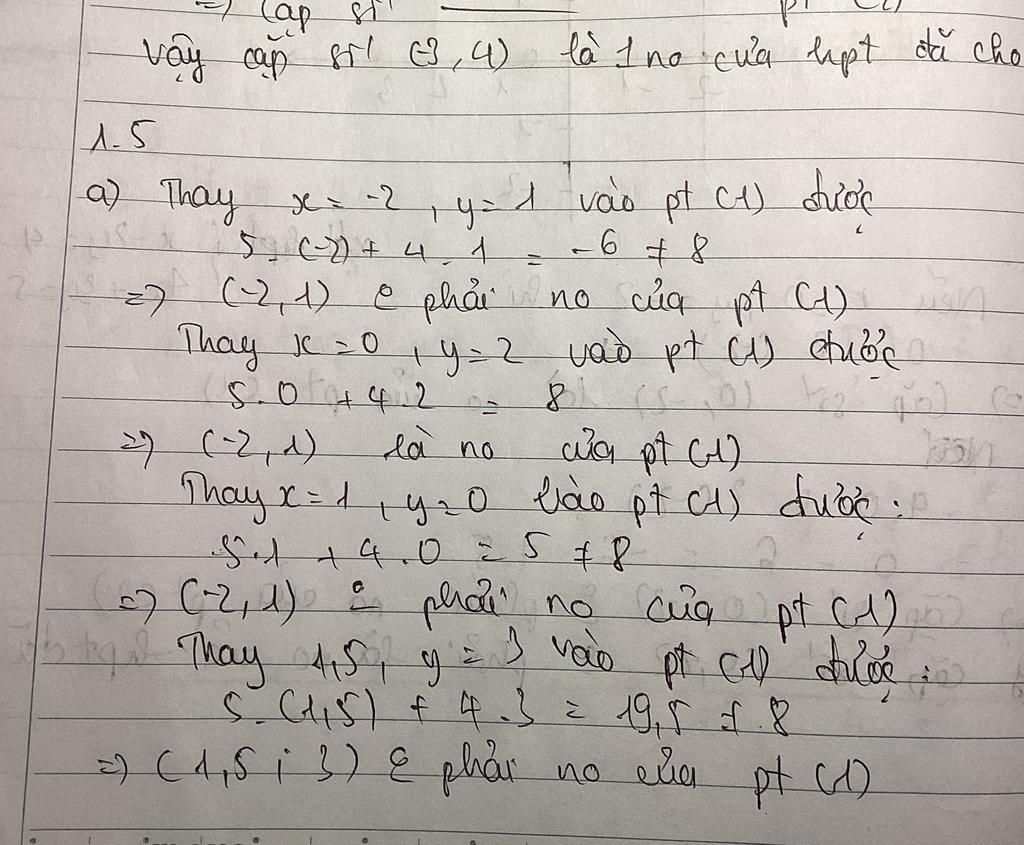 =) Cặp số pt (2)
vậy cặp số (-3, 4) là 1 no của hpt đã cho
1.5
a) Thay x = -2, y = 1 vào pt (1) được
5.(-2) + 4.1 = -6 ≠ 8
=) (-2, 1) phải no của pt (1)
Thay x = 0, y = 2 vào pt (1) được
5.0 + 4.2 = 8
=) (-2, 1) là no của pt (1)
Thay x = 1, y = 0 vào pt (1) được :
5.1 + 4.0 = 5 ≠ 8
=) (-2, 1) phải no của pt (1)
Thay 1,5, y = 3 vào pt (1) được :
5.(1,5) + 4.3 = 19,5 ≠ 8
=) (1,5 ; 3) phải no của pt (1)